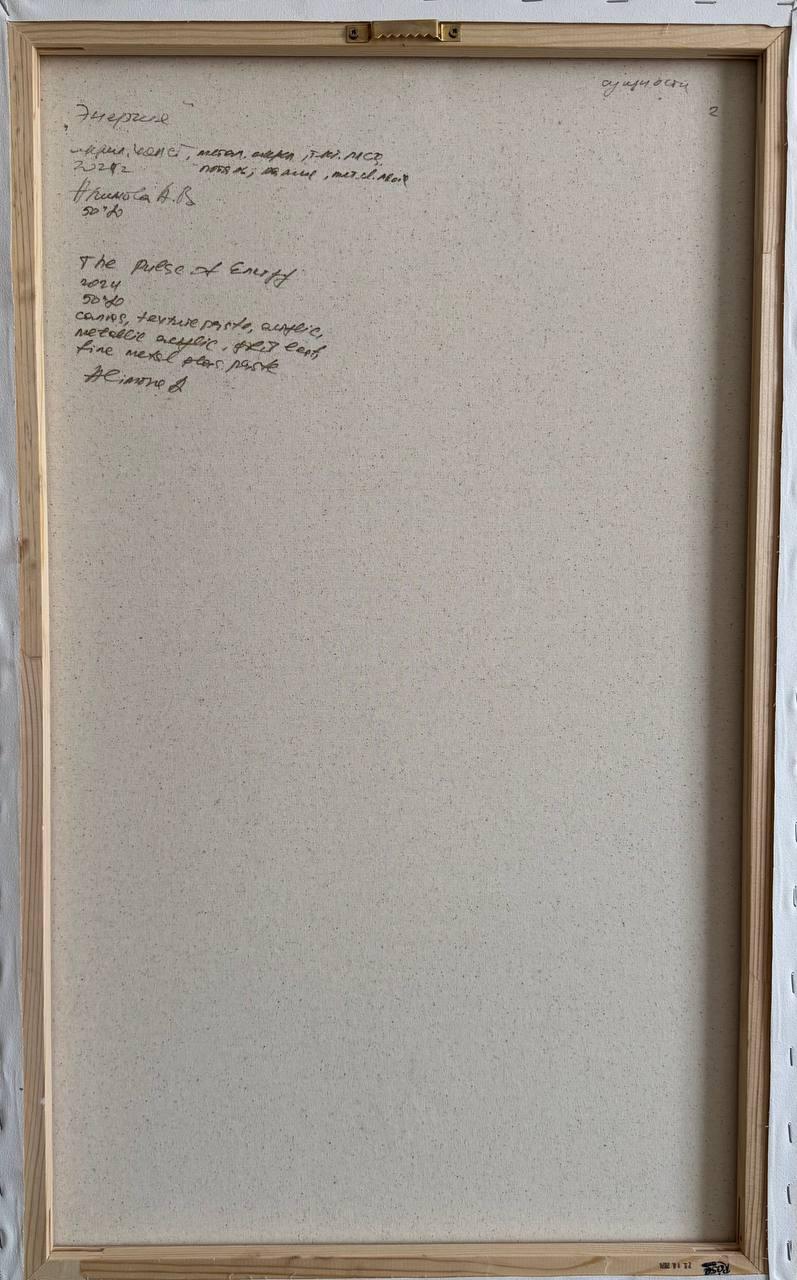 сущности
2
"Энергия"
акрил, холст, метал. акрил, текст. паста
2024г поталь,
Алимова А.В
50*90
The pulse of Energy
2024
50*90
canvas, texture paste, acrylic,
metallic acrylic, gold leaf,
fine metal glass paste
Alimova A